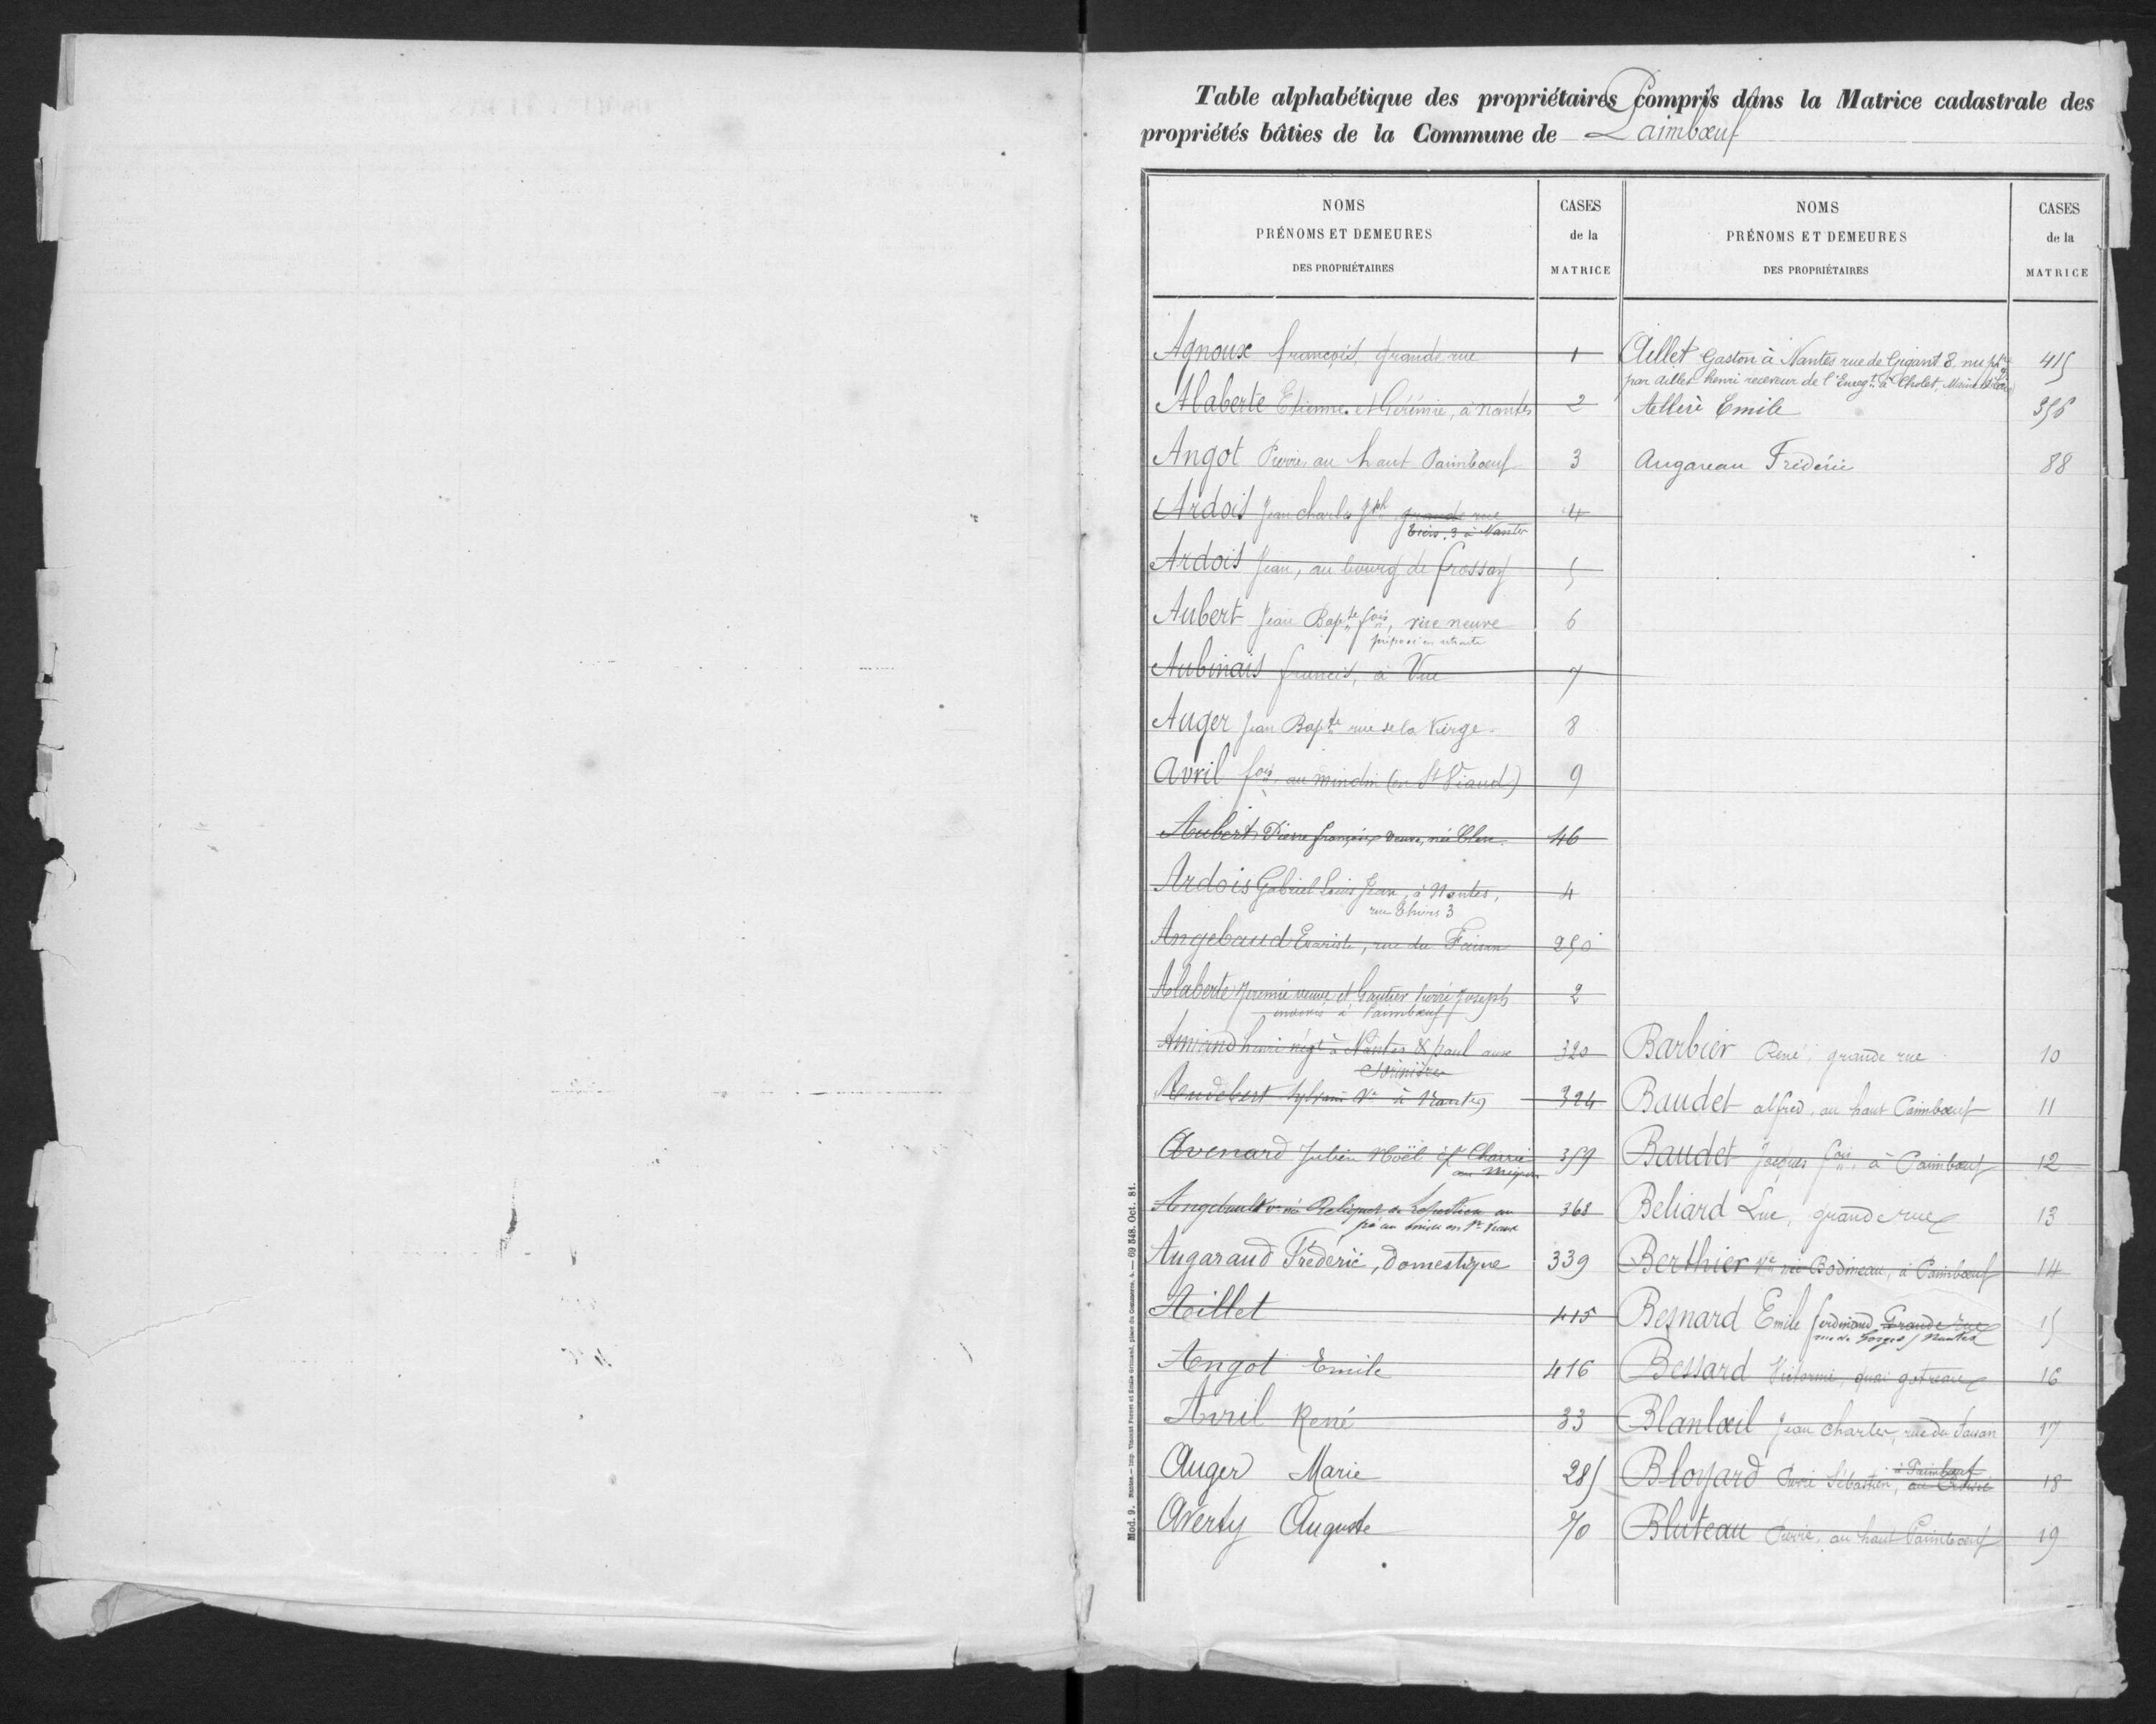 Table alphabétique des propriétaires compris dans la Matrice cadastrale des
propriétés bâties de la Commune de Paimbœuf
NOMS
PRÉNOMS ET DEMEURES
DES PROPRIÉTAIRES
CASES
de la
MATRICE
Agnoux françois, grande rue 1
Alaberte Etienne et Gérémie, à nantes 2
Angot Pierre au haut Paimbœuf 3
Ardois Jean charles Jph grande rue 4
Thiers. 3 à Nantes
Ardois Jean, au bourg de frossay 5
Aubert Jean Bapte fois, rue neuve 6
préposé en retraite
Aubinais francis, à Vue 7
Auger Jean Bapte rue de la Vierge 8
Avril fois, au mindin (en St Viaud) 9
Aubert Pierre françois veuve, née 46
Ardois Gabriel Louis Jean, à Nantes, 4
rue Thiers 3
Angebaud Evariste, rue du Faisan 250
Alaberte Jeremie veuve et Gautier pierre Joseph 2
indivis à Paimbœuf
Amiand henri négt à Nantes & paul aux 320
Sorinières
Audebert Sylvain Ve à Nantes 324
Avenard Julien Noël 359
au Migron
Angebault ve née 368
Augaraud Frédéric, Domestique 339
Aillet 415
Angot Emile 416
Avril René 33
Auger Marie 285
Averty Auguste 70
NOMS
PRÉNOMS ET DEMEURES
DES PROPRIÉTAIRES
CASES
de la
MATRICE
Aillet Gaston à Nantes rue de Gigant 8 nu pte 415
par Aillet henri receveur de l'Enregt à Cholet, Maine et Loire
Emile 356
Augareau Frédéric 88
Barbier René, grande rue 10
Baudet alfred, au haut Paimbœuf 11
Baudet Jacques fois, à Paimbœuf 12
Beliard Luc, grande rue 13
Berthier Ve née Bodineau, à Paimbœuf 14
Besnard Emile ferdinand Grande rue 15
rue de Nantes
Bessard Victorine, quai gotreau 16
Blanlœil Jean Charles, rue du faisan 17
Bloyard Pierre Sébastien, à Paimbœuf 18
Bluteau Pierre, au haut Paimbœuf 19
Mod. 9. Nantes. — Imp. Vincent Forest et Émile Grimaud, place du Commerce, 4. — 69 848. Oct. 81.